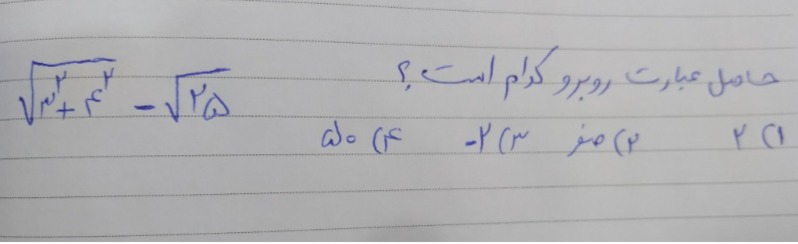 حاصل عبارت روبرو کدام است؟ √۳²+۴² - √۲۵
۱) ۲ ۲) صفر ۳) ۲- ۴) ۵۰